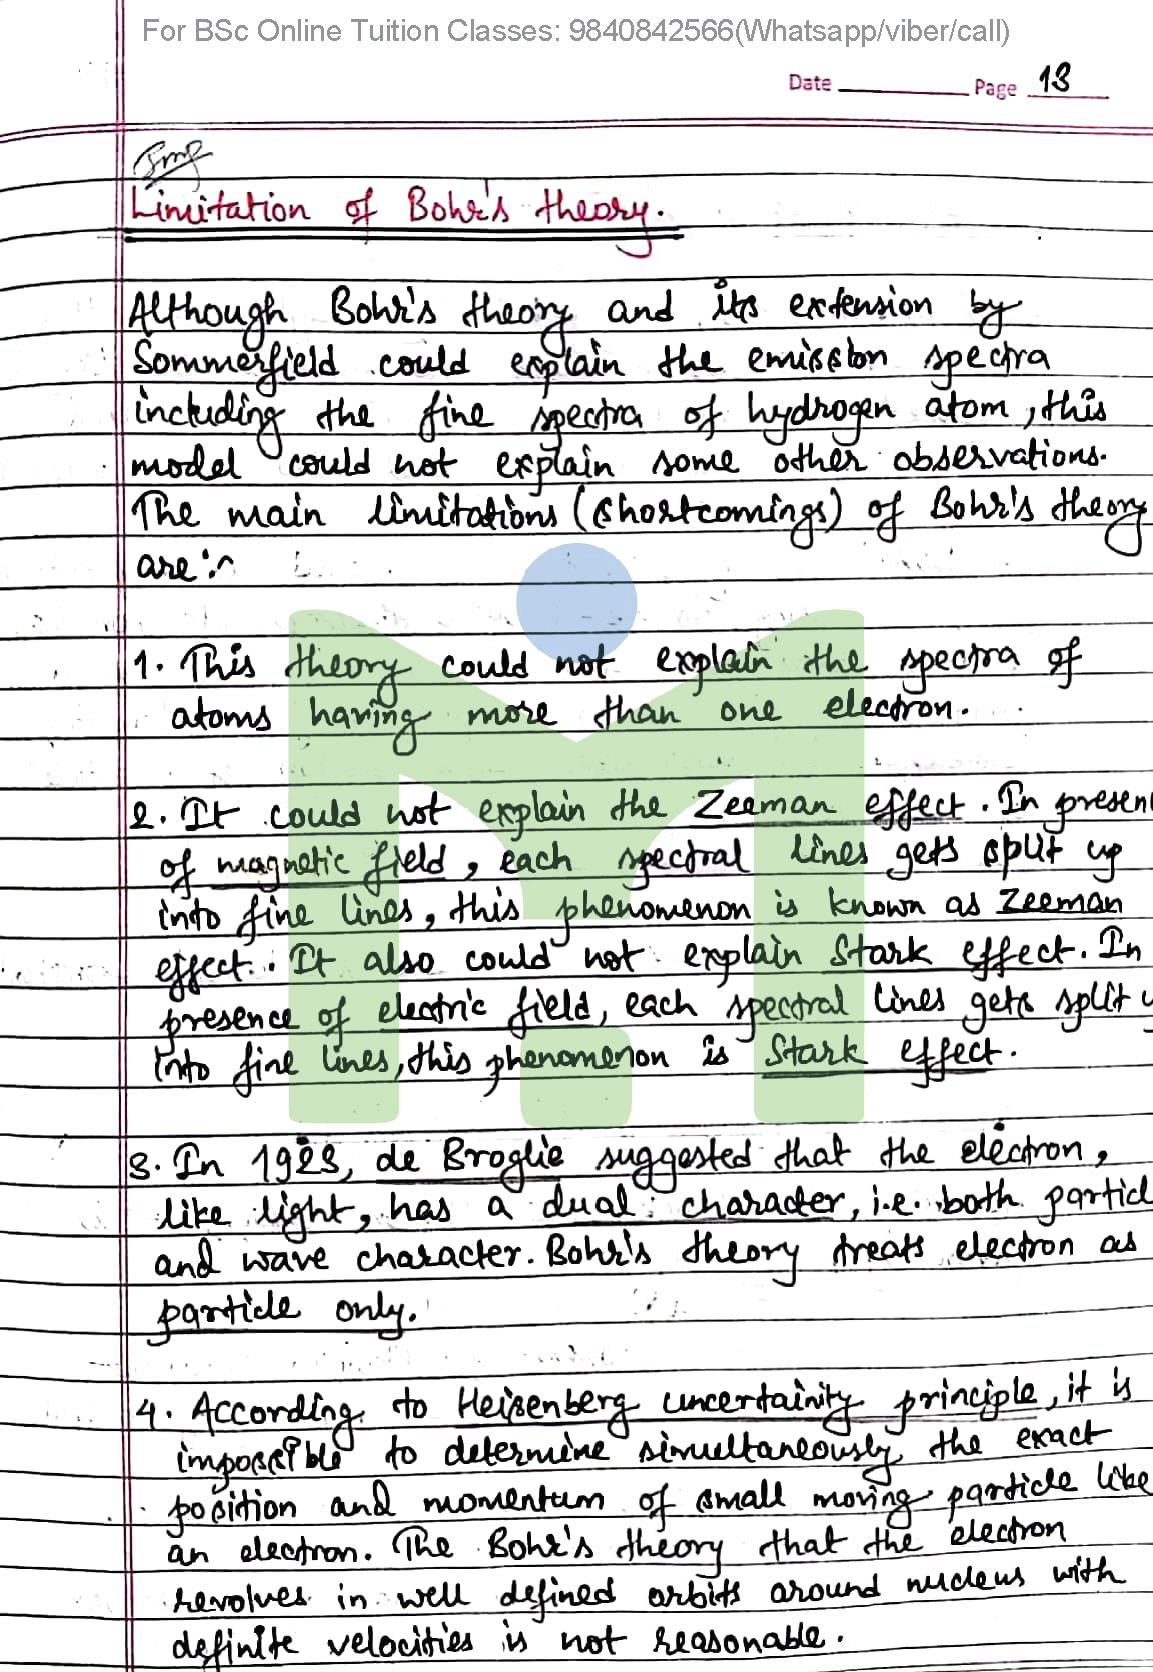 For BSc Online Tuition Classes: 9840842566(Whatsapp/viber/call)
Date Page 13
Imp
Limitation of Bohr's theory.
Although Bohr's theory and its extension by
Sommerfield could explain the emission spectra
including the fine spectra of hydrogen atom, this
model could not explain some other observations.
The main limitations (shortcomings) of Bohr's theory
are:~
1. This theory could not explain the spectra of
atoms having more than one electron.
2. It could not explain the Zeeman effect. In presen
of magnetic field, each spectral lines gets split up
into fine lines, this phenomenon is known as Zeeman
effect. It also could not explain Stark effect. In
presence of electric field, each spectral lines gets split u
into fine lines, this phenomenon is Stark effect.
3. In 1923, de Broglie suggested that the electron,
like light, has a dual character, i.e. both particl
and wave character. Bohr's theory treats electron as
particle only.
4. According to Heisenberg uncertainity principle, it is
impossible to determine simultaneously the exact
position and momentum of small moving particle like
an electron. The Bohr's theory that the electron
revolves in well defined orbits around nucleus with
definite velocities is not reasonable.